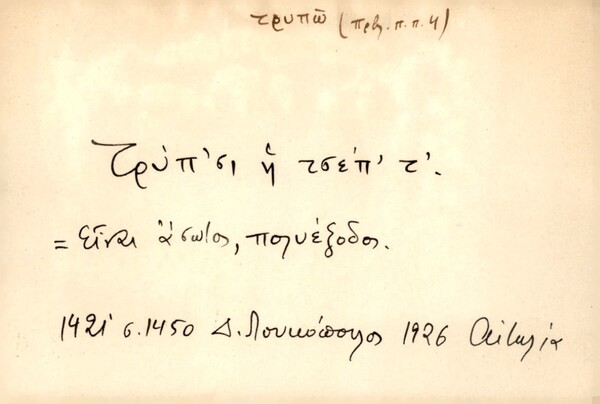 τρυπῶ (πρβ. π. π. 4)
Τρύπ'σι ἡ τσέπ' τ'.
= Εἶναι ἄσωτος, πολυέξοδος.
1421 σ. 1450 Δ. Λουκόπουλος 1926 Αἰτωλία